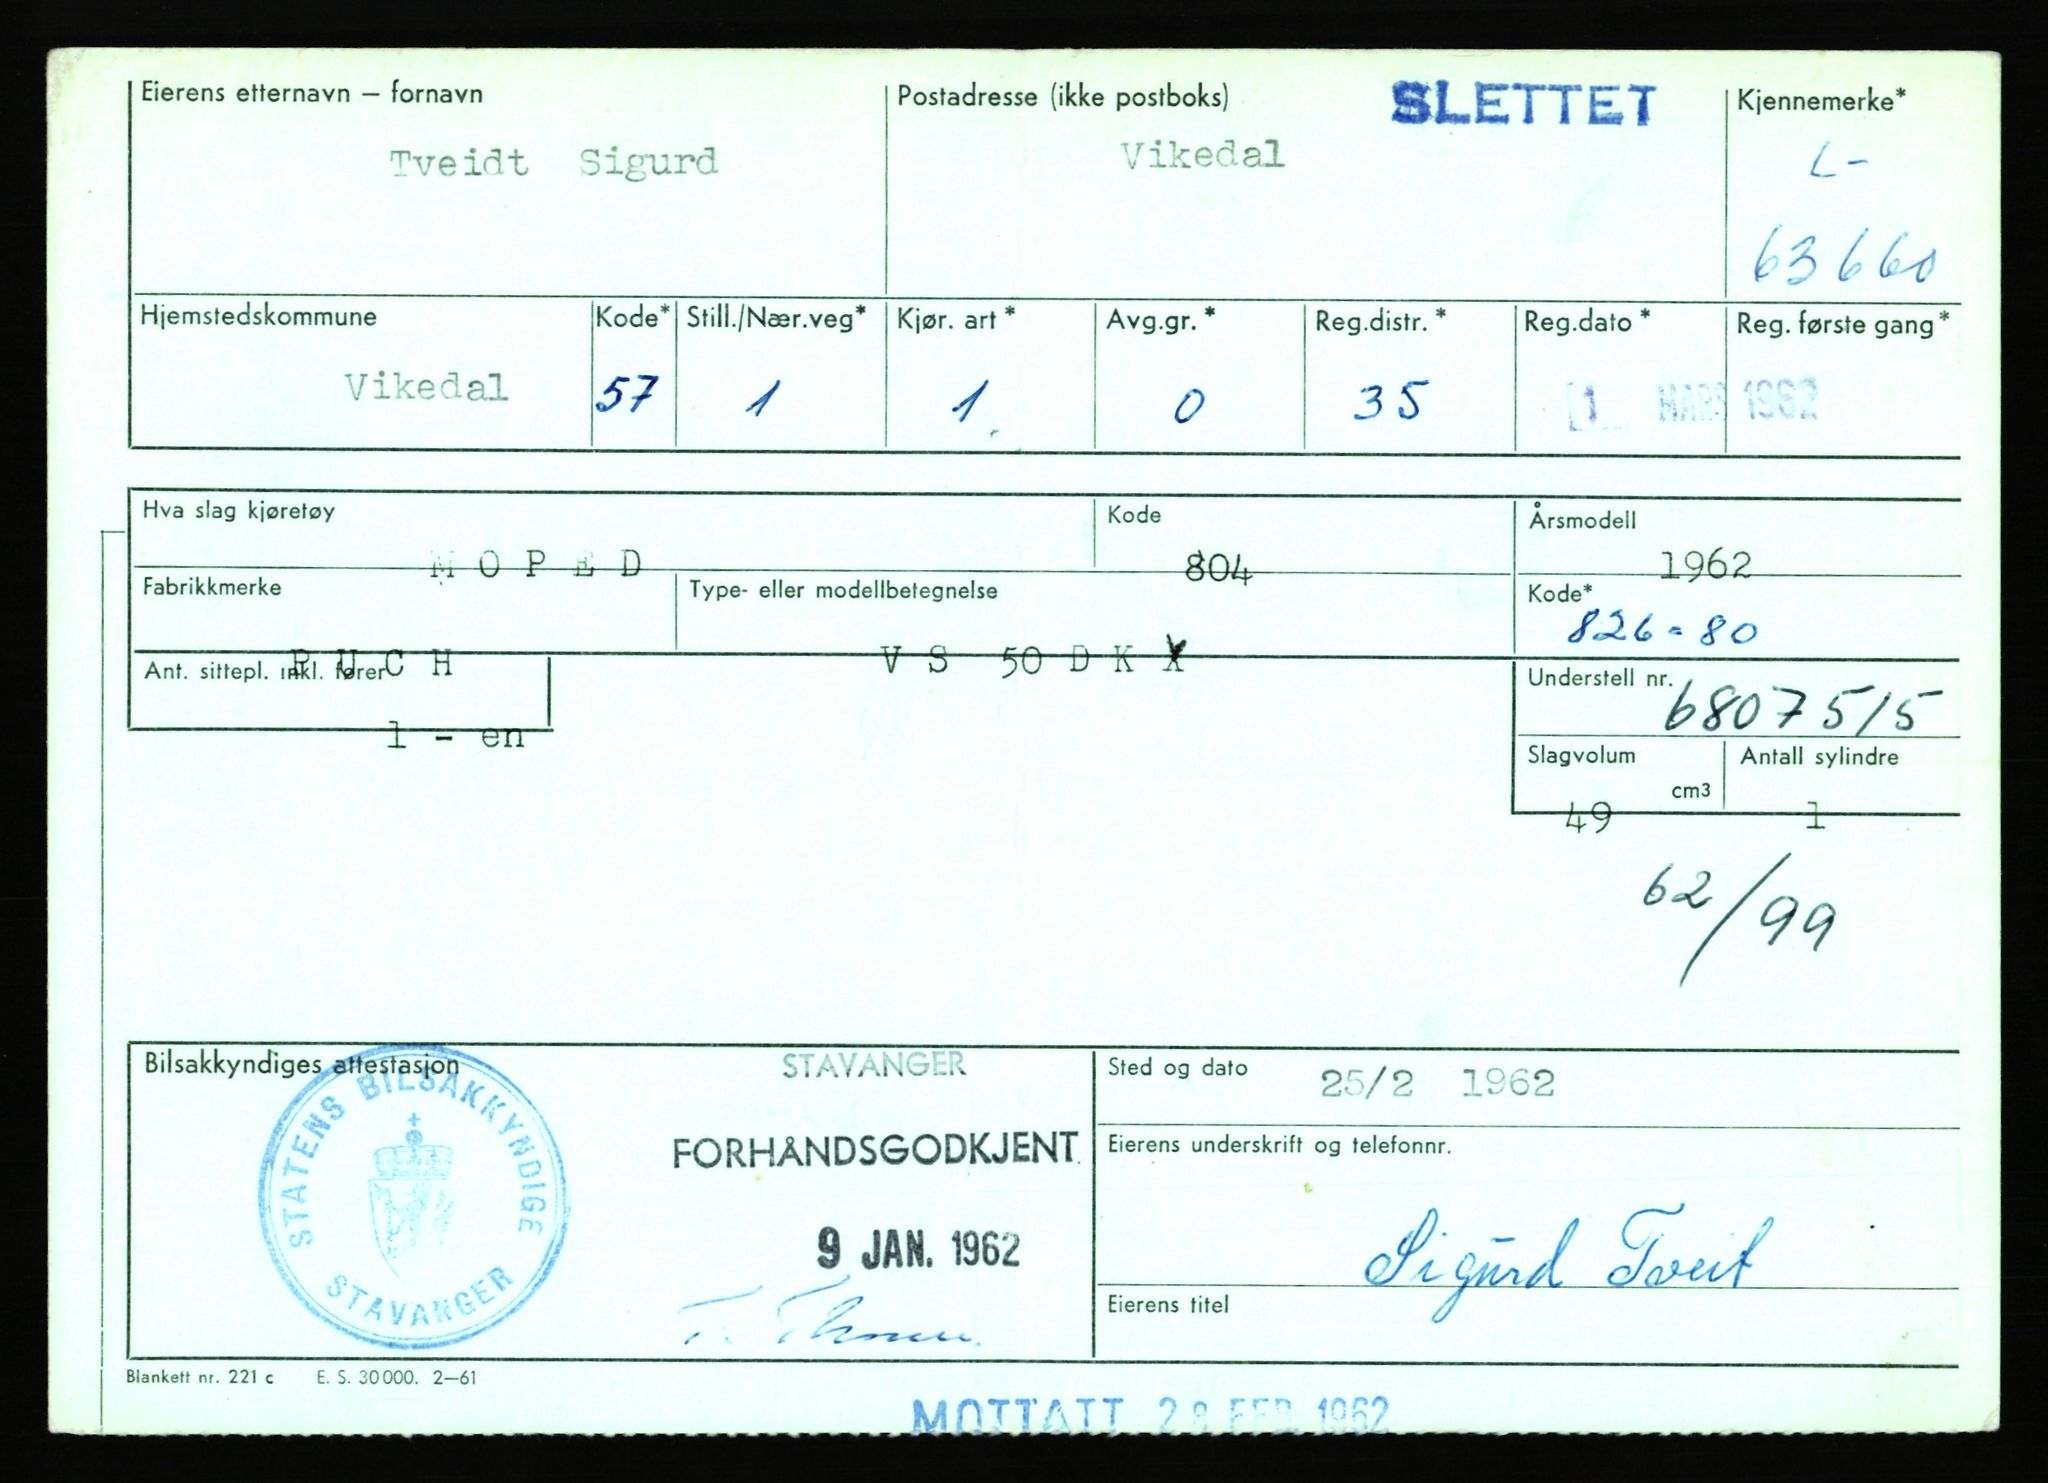 Eierens etternavn – fornavn
Tveidt Sigurd
Postadresse (ikke postboks)
Vikedal
SLETTET
Kjennemerke*
L-
63660
Hjemstedskommune
Vikedal
Kode*
57
Still./Nær.veg*
1
Kjør. art *
1
Avg.gr. *
0
Reg.distr. *
35
Reg.dato *
Reg. første gang *
1 MARS 1962
Hva slag kjøretøy
MOPED
Kode
804
Årsmodell
1962
Fabrikkmerke
PUCH
Type- eller modellbetegnelse
VS 50 DK
Kode*
826-80
Ant. sittepl. inkl. fører
1 - en
Understell nr.
6807515
Slagvolum
49 cm3
Antall sylindre
1
62/99
Bilsakkyndiges attestasjon
STATENS BILSAKKYNDIGE
STAVANGER
STAVANGER
FORHÅNDSGODKJENT
9 JAN. 1962
Sted og dato
25/2 1962
Eierens underskrift og telefonnr.
Sigurd Tveit
Eierens titel
Blankett nr. 221 c E. S. 30000. 2—61
MOTTATT 28 FEB 1962